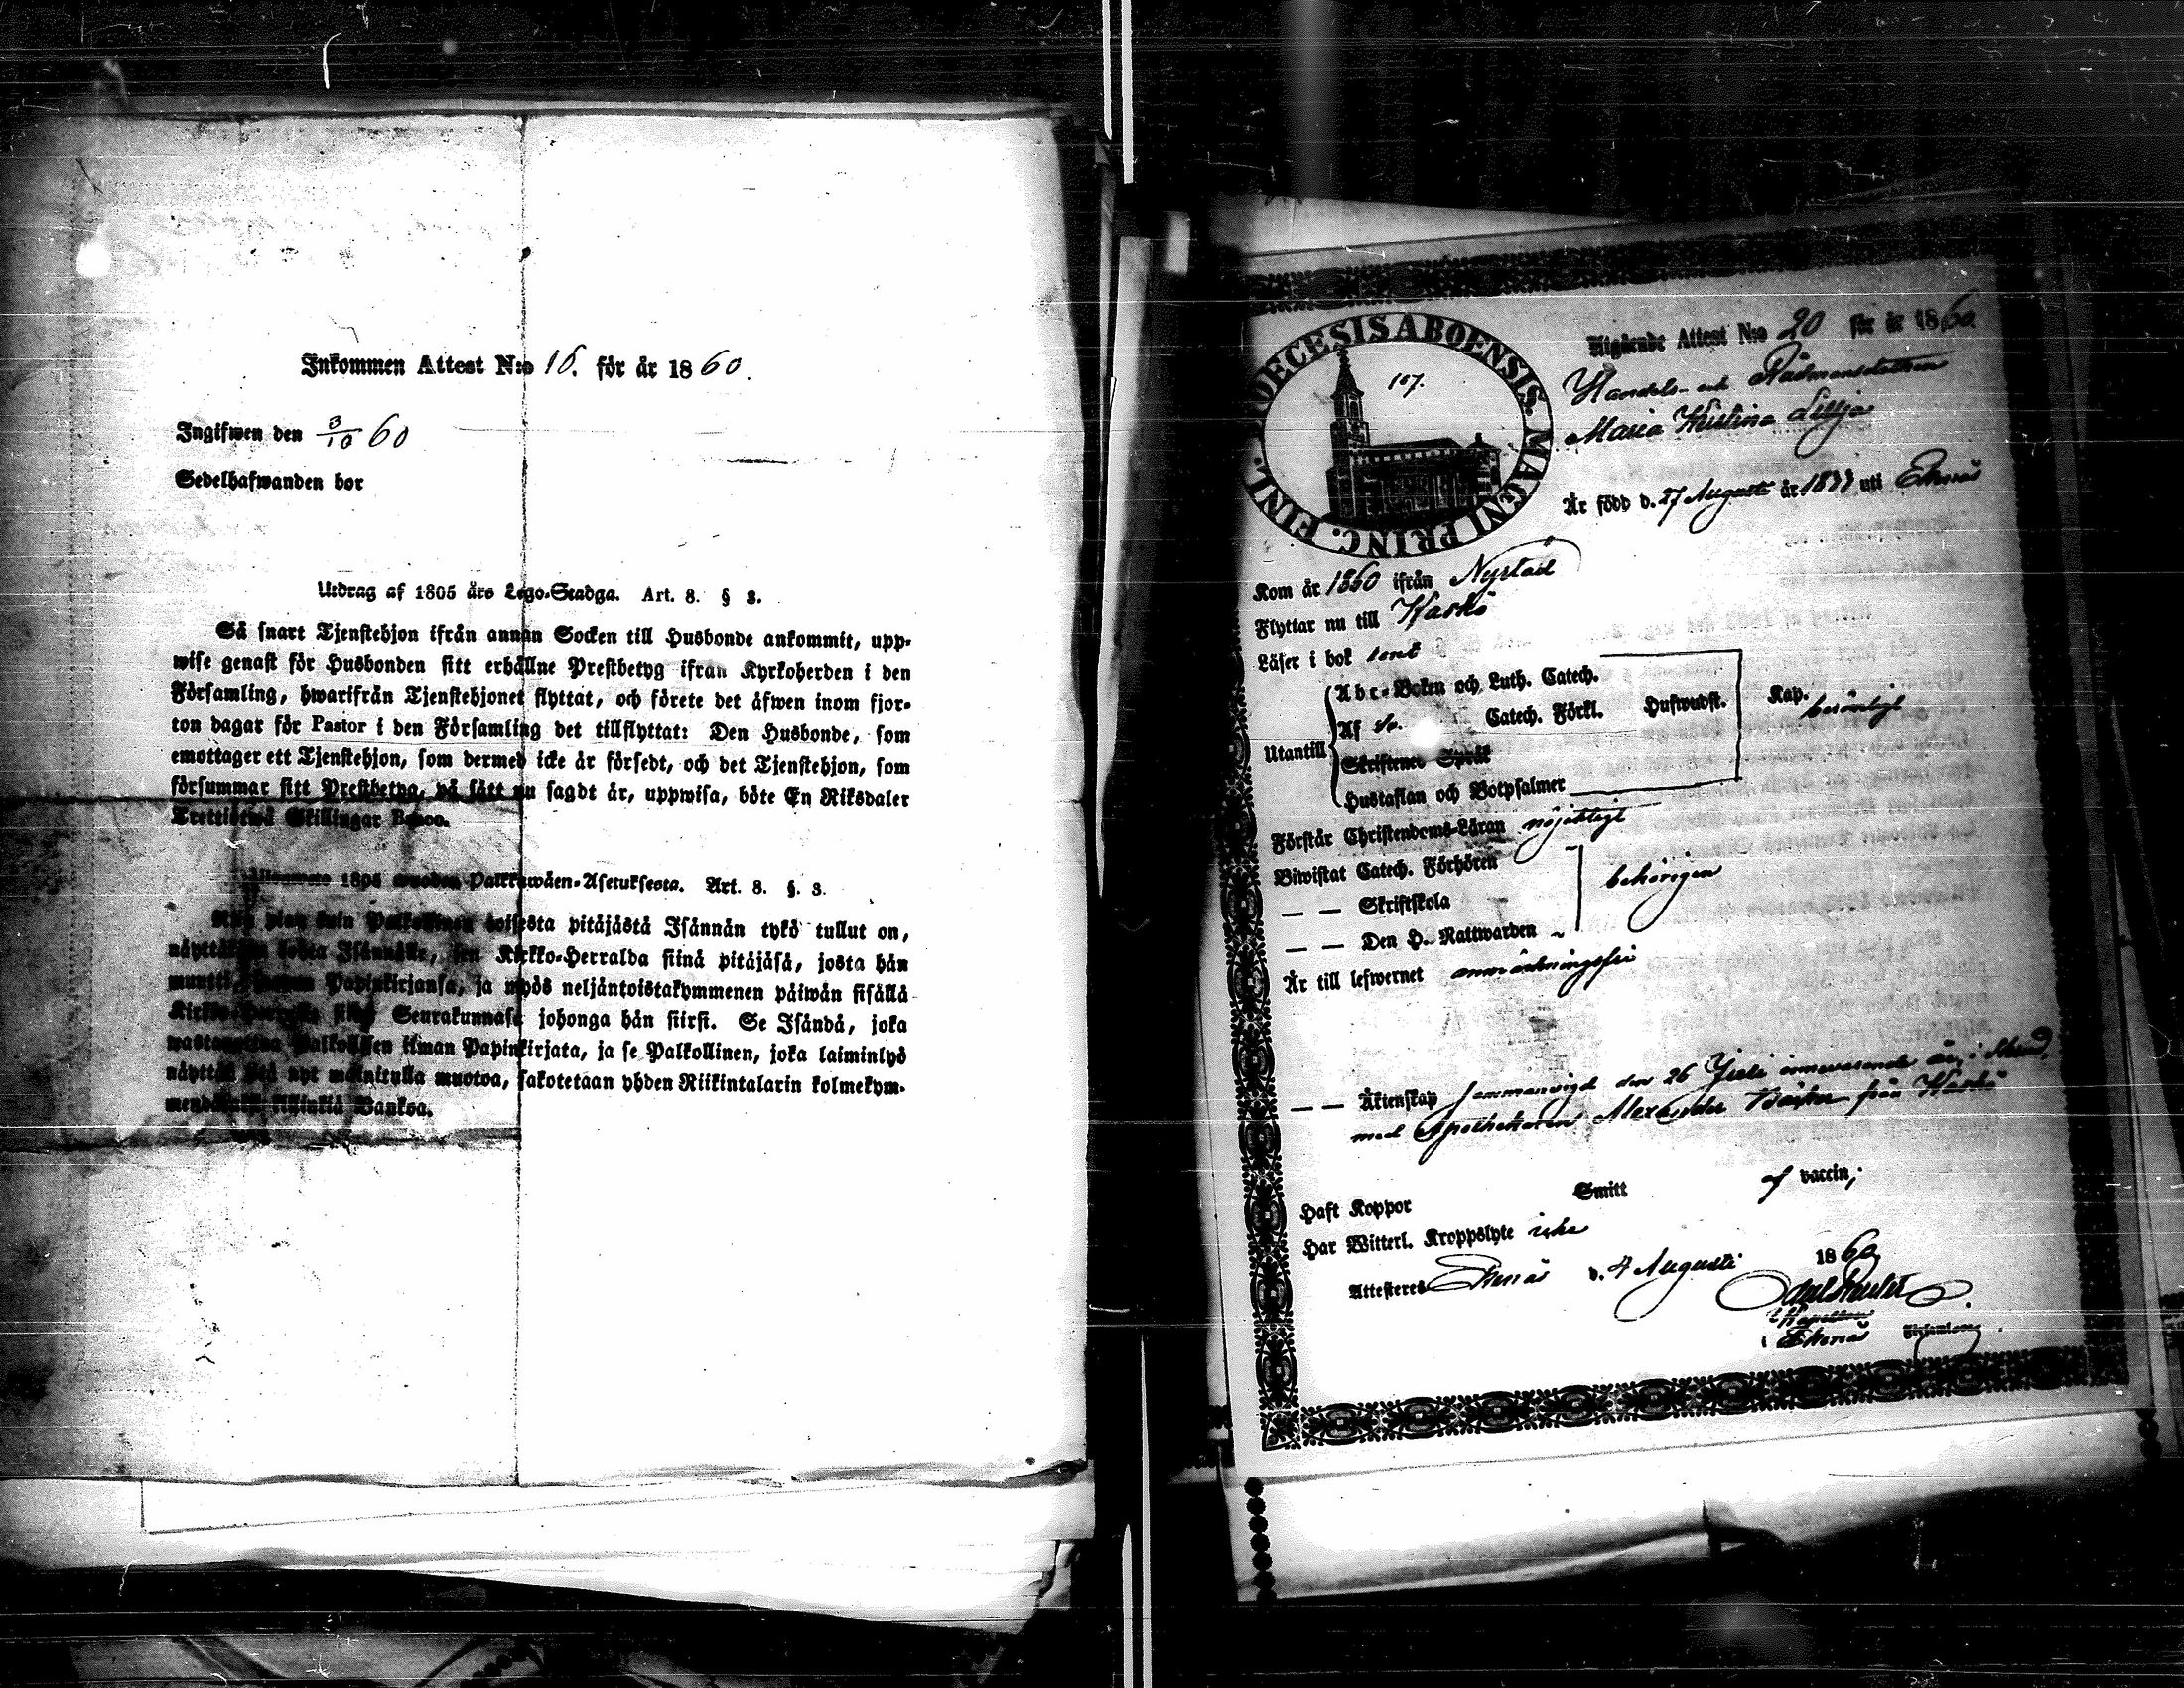 Inkommen Attest N:o 16. för år 1860.
Ingifwen den 3/10 60
Sedelhafwanden bor
Utdrag af 1805 års Lego-Stadga. Art. 8. § 3.
Så snart Tjenstehjon ifrån annan Socken till Husbonde ankommit, upp-
wise genast för Husbonden sitt erhållne Prestbetyg ifrån Kyrkoherden i den
Församling, hwarifrån Tjenstehjonet flyttat, och förete det äfwen inom fjor-
ton dagar för Pastor i den Församling det tillflyttat: Den Husbonde, som
emottager ett Tjenstehjon, som dermed icke är försedt, och det Tjenstehjon, som
försummar sitt Prestbetyg, på sätt nu sagdt är, uppwisa, böte En Riksdaler
Trettiotwå Skillingar Banco.
1805 wuoden Palkkawäen-Asetuksesta. Art. 8. §. 3.
kuin Palkollinen toisesta pitäjästä Isännän tykö tullut on,
Isännälle, sen Kirkko-Herralda siinä pitäjäsä, josta hän
muutti, Papinkirjansa, ja myös neljäntoistakymmenen päiwän sisällä
Kirkko-Herralle siinä Seurakunnasa johonga hän siirsi. Se Isändä, joka
wastaanottaa Palkollisen ilman Papinkirjata, ja se Palkollinen, joka laiminlyö
näyttää sitä nyt mainitulla muotoa, sakotetaan yhden Riikintalarin kolmekym-
Bankoa.
DIOECESIS ABOENSIS. MAGNI PRINC. FINL.
107.
Utgående Attest N:o 20 för år 1860
Handels- och Rådmansdottren
Maria Kristina Lillja
Är född d. 27 Augusti år uti Ekenäs
Kom år 1860 ifrån Nystad
Flyttar nu till Kaskö
Läser i bok rent
Utantill
Abc-Boken och Luth. Catech.
Af Catech. Förkl. Hufwudst. Kap. berömligt
Skriftenes Språk
Hustaflan och Botpsalmer
Förstår Christendoms-Läran nöjaktigt
Biwistat Catech. Förhören
— — Skriftskola behörigen
— — Den H. Nattwarden
Är till lefwernet anmärkningsfri
— — Äktenskap sammanvigd den 26 Juli innevarande år i
med Apothekaren Alexander från Kaskö
Haft Koppor Smitt af vaccin;
Har Witterl. Kroppslyte icke
Attesteres Ekenäs d. 4 Augusti 1860
Kapellan
i Ekenäs Församling